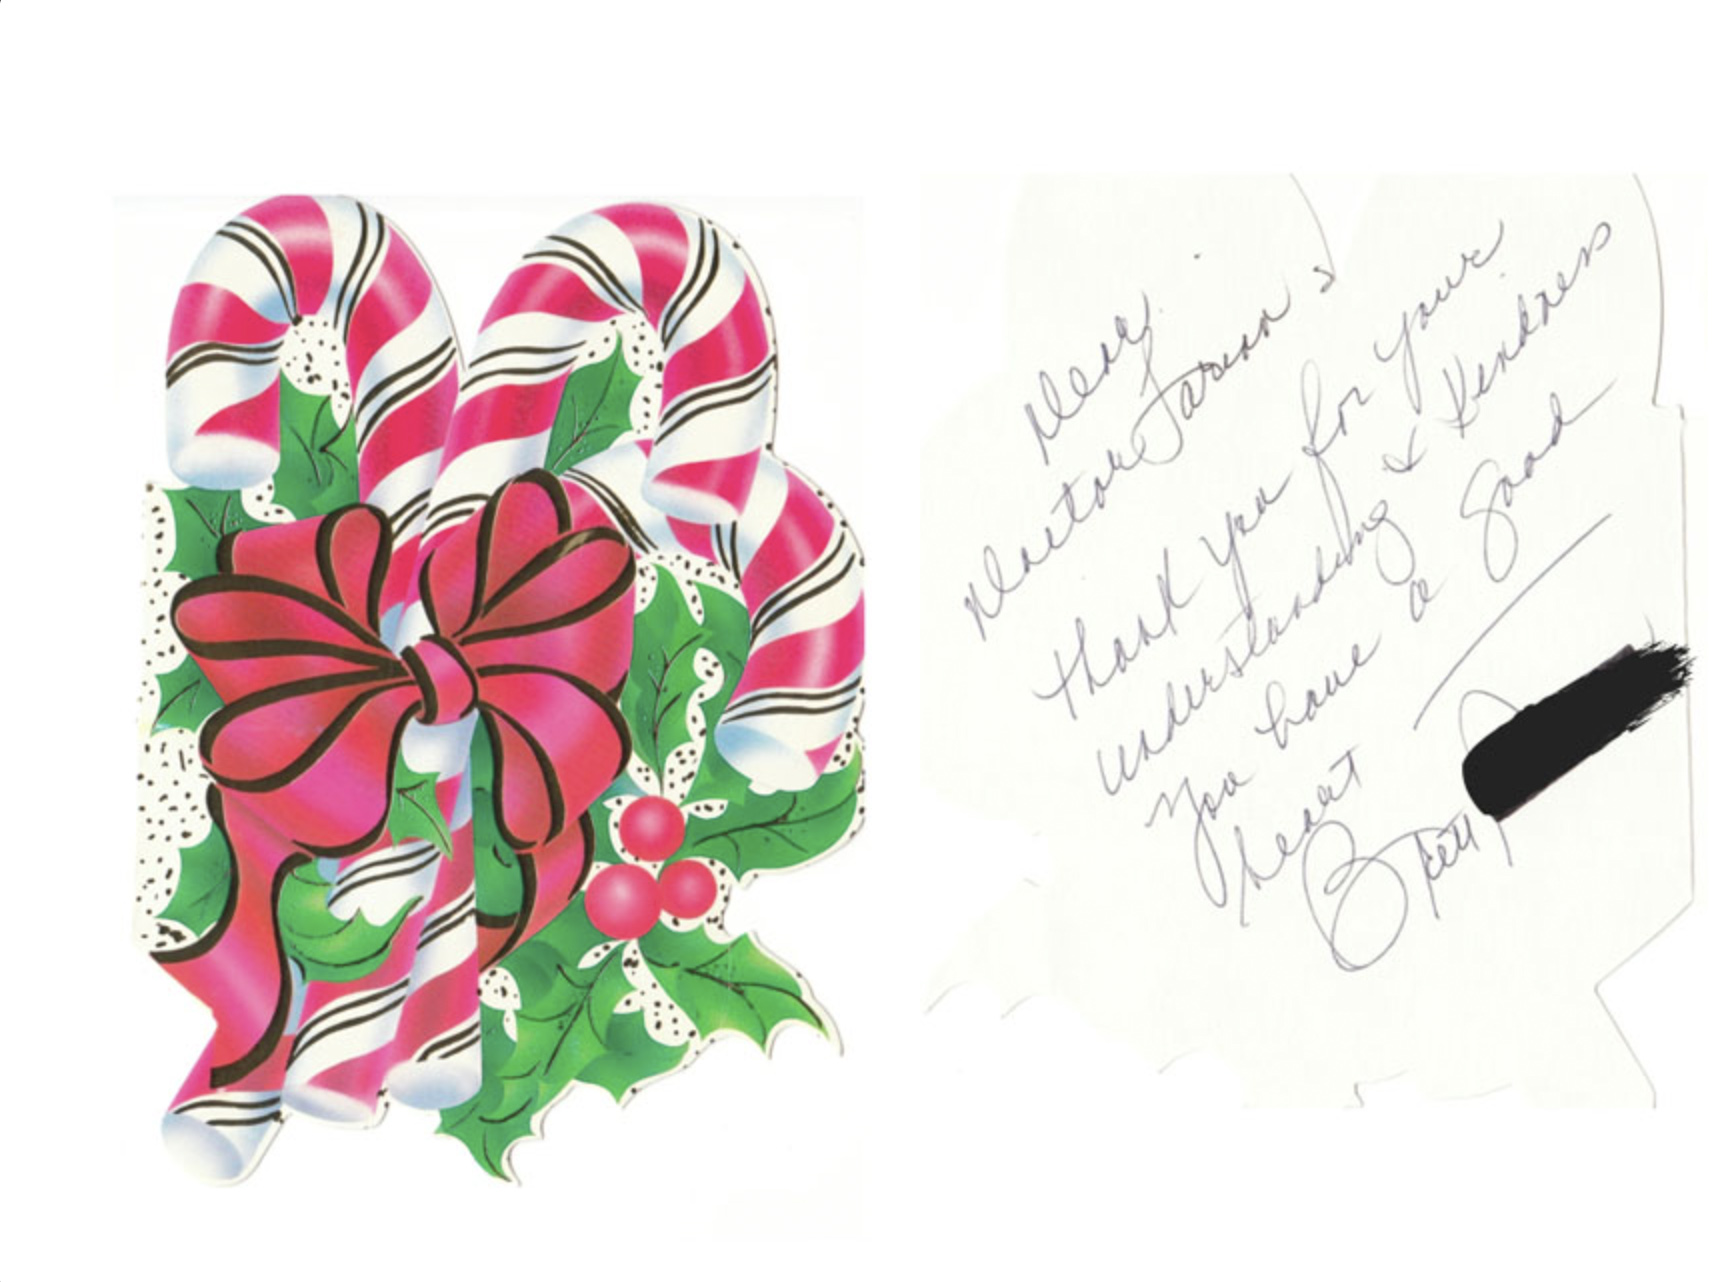 Dear
Doctor
Thank you for your
understanding & Kindness
You have a Good
heart
Betty